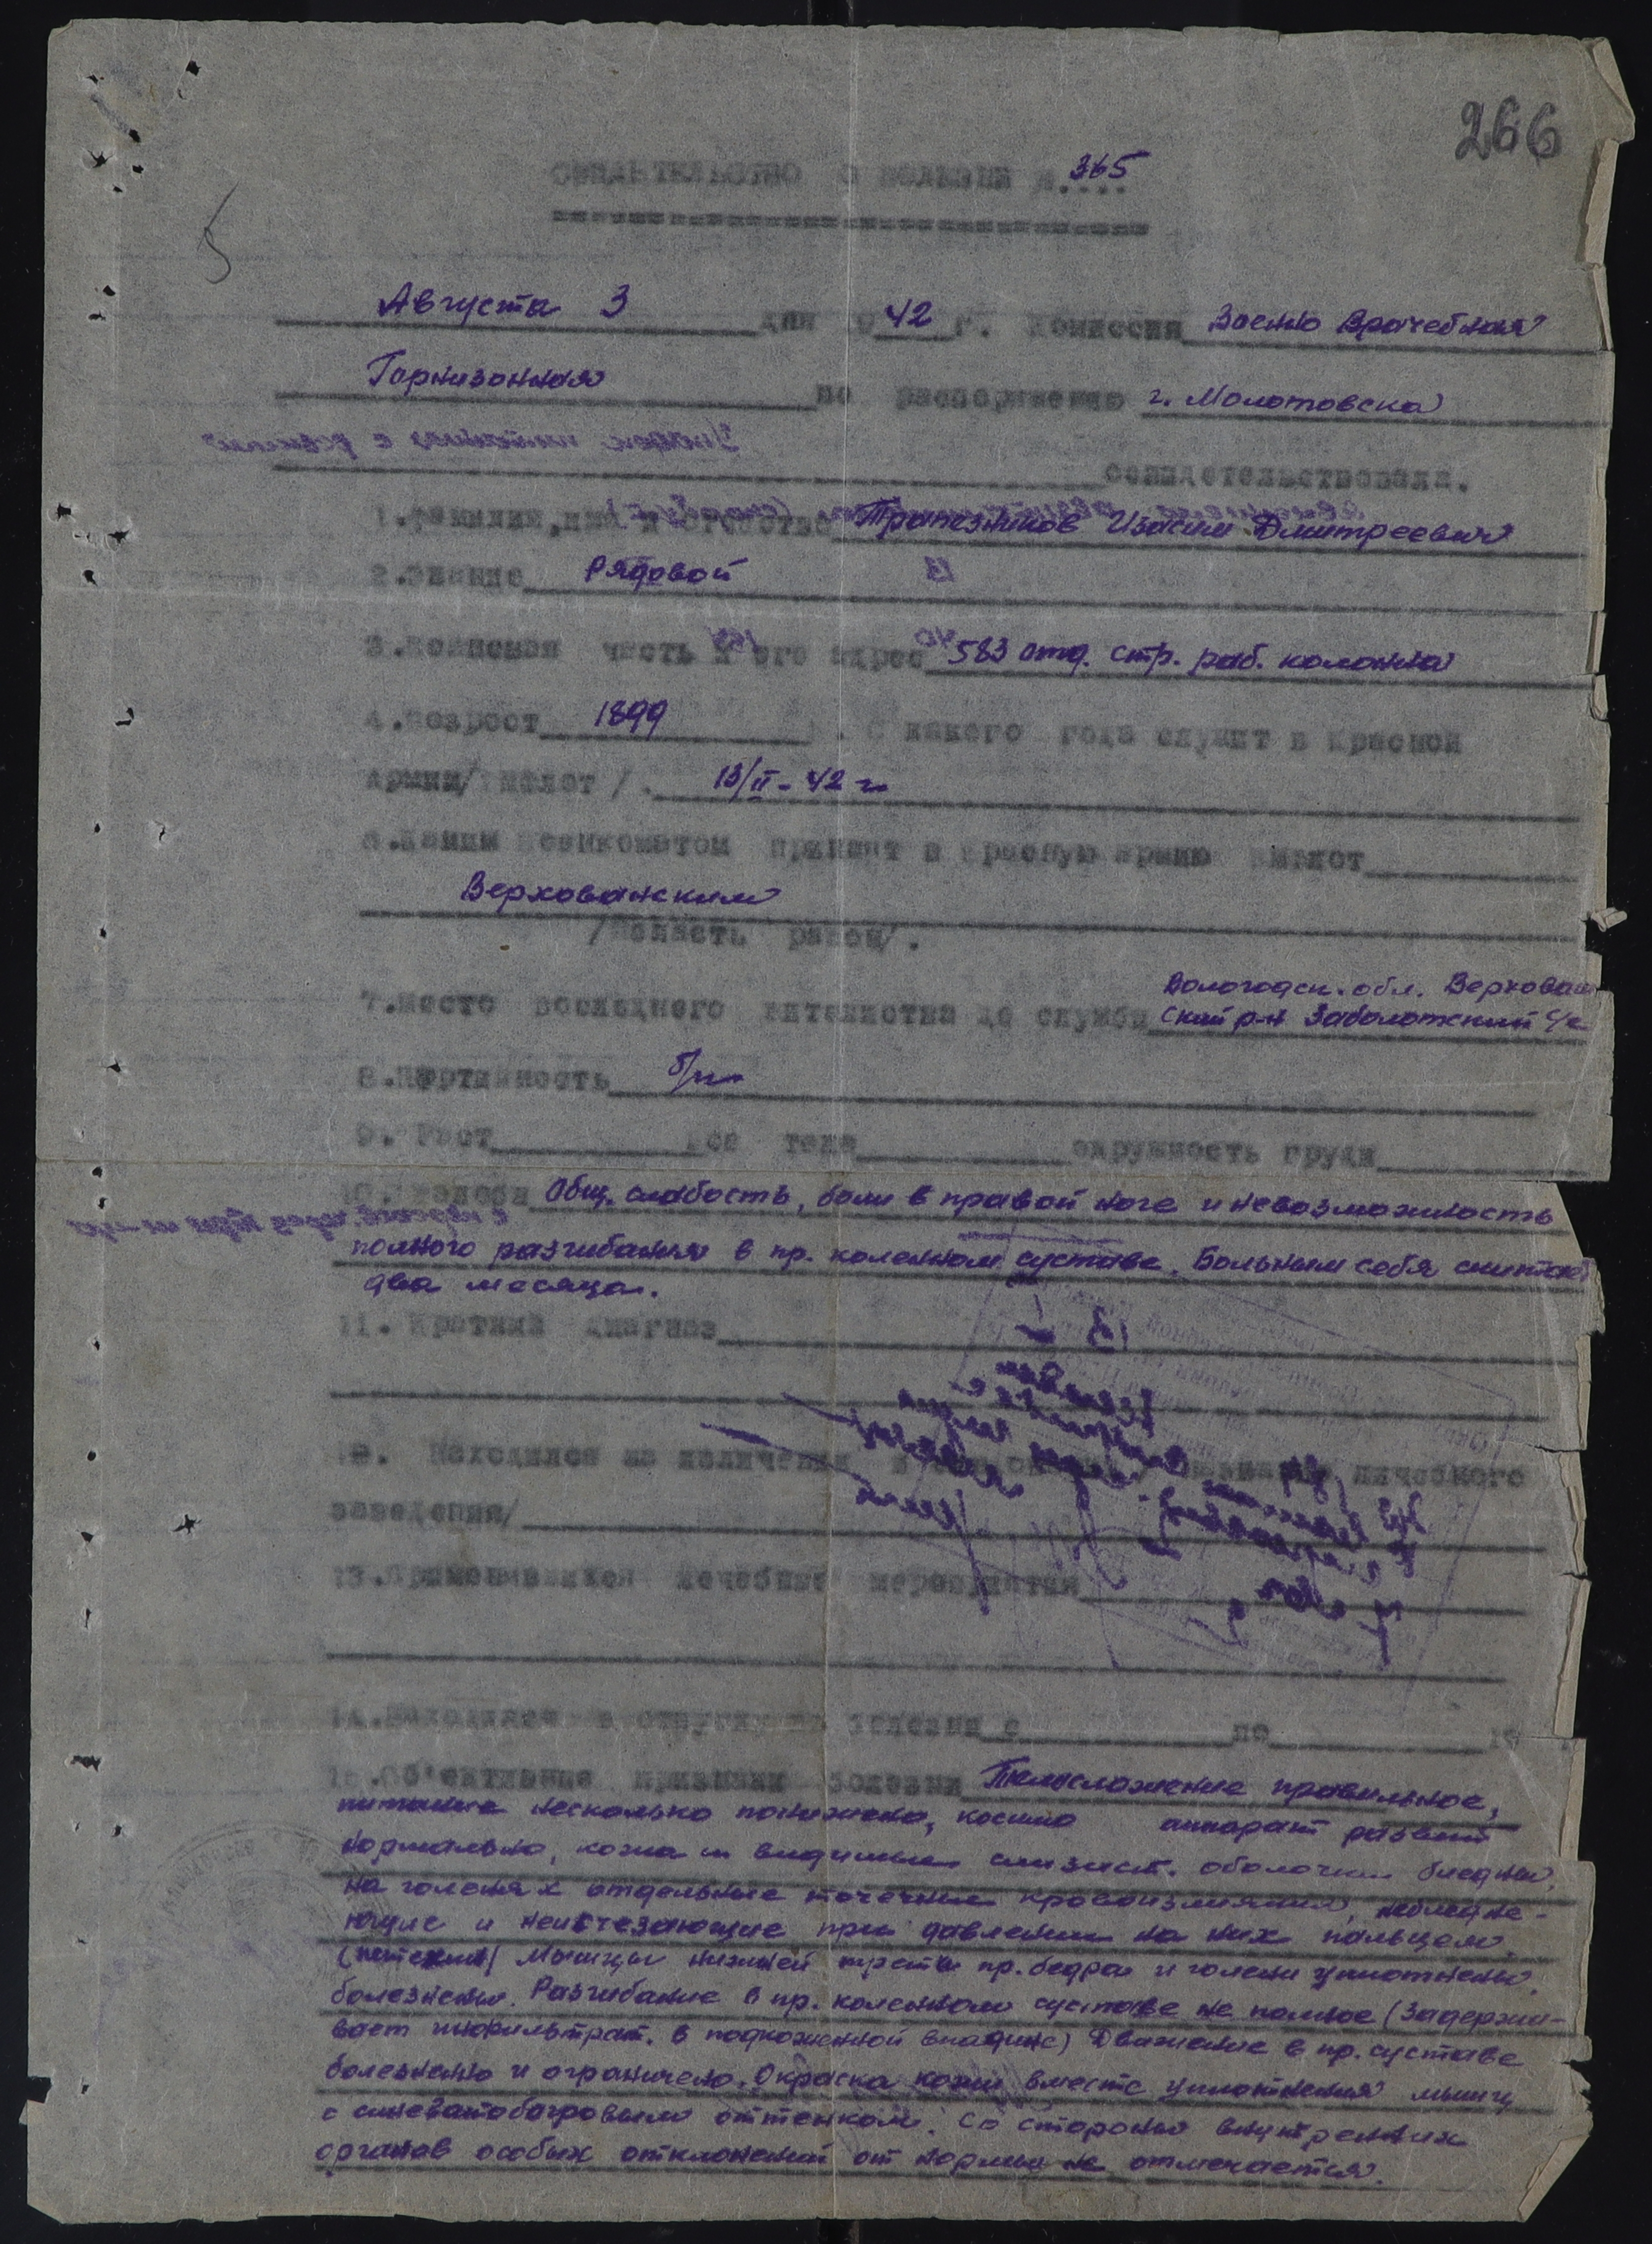 266
СВИДЕТЕЛЬСТВО О БОЛЕЗНИ №.365
5
Августа 3 дня 942 г. Комиссия Военно Врачебная
Гарнизонная по распоряжению г. Молотовска
освидетельствовала.
1.Фамилия, имя и отчество Трапезников Изосим Дмитреевич
2.Звание Рядовой
3.Воинская часть и его адрес 583 отд. стр. раб. колонна
4.Возраст 1899. С какого года служит в Красной
Армии/ Вмфлот /. 13/II-42 г
6.Каким Военкоматом принят в Красную Армию Вмфлот
Верховажским
/Область район/.
7.Место последнего жительства до службы Вологодск. обл. Верховаж
ский р-н Заболотский с/с
8.Партийность б/п
9. Рост Вес тела окружность груди
10.Жалобы Общ. слабость, боли в правой ноге и невозможность
полного разгибания в пр. коленном суставе. Больным себя считает
два месяца.
11. Краткий диагноз
12. Находился на излечении лечебного
заведения/
13.Применявшиеся лечебные мероприятия
14.Находился в отпуску по болезни с по 19
15.Об'ективные признаки болезни Телосложение правильное,
питание несколько понижено, костно аппарат развит
нормально, кожа и видимые слизист. оболочки бледны,
на голенях отдельные точечные кровоизлияния, небледне-
ющие и неисчезающие при давлении на них пальцем.
(петехии) Мышцы нижней трети пр. бедра и голени уплотнены,
болезнены. Разгибание в пр. коленном суставе не полное (задержи-
вает инфильтрат. в подколенной впадине) Движение в пр. суставе
болезнено и ограничено. Окраска кожи вместе уплотнения мышц
с синеватобагровым оттенком. Со стороны внутренних
органов особых отклонений от нормы не отмечается.